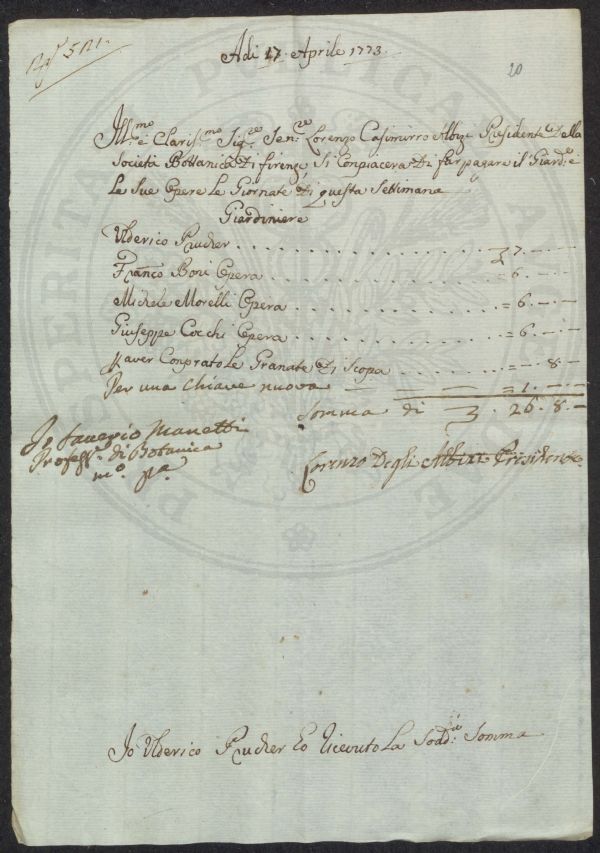 Adi 17. Aprile 1773
20
Ill.mo e Clariss.mo Sig.re Sen.re Lorenzo Casimirro Albizi Presidente Della
Società Bottanica Di firenze, Si Conpiacerà Di far pagare il Giard.e e
Le Sue Opere Le Giornate Di questa Settimana
Giardiniere
Ulderico Prucher . . . . . . . . . . . . . . . . 7. — . —
Franco Boni Opera . . . . . . . . . . . . . . . = 6. — . —
Michele Morelli Opera . . . . . . . . . . . . . = 6. — . —
Giuseppe Cocchi Opera . . . . . . . . . . . . . = 6. — . —
p aver Conprato Le Granate Di Scopa . . . . . . = — . 8. —
Per una chiave nuova — — = 1. — . —
Somma di 26. 8. —
Io Saverio Manetti
Profess.e di Botanica
mo. pa.
Lorenzo Degli Albizi Presidente
Io Ulderico Prucher Eo Ricevuto La Sodd.a Somma